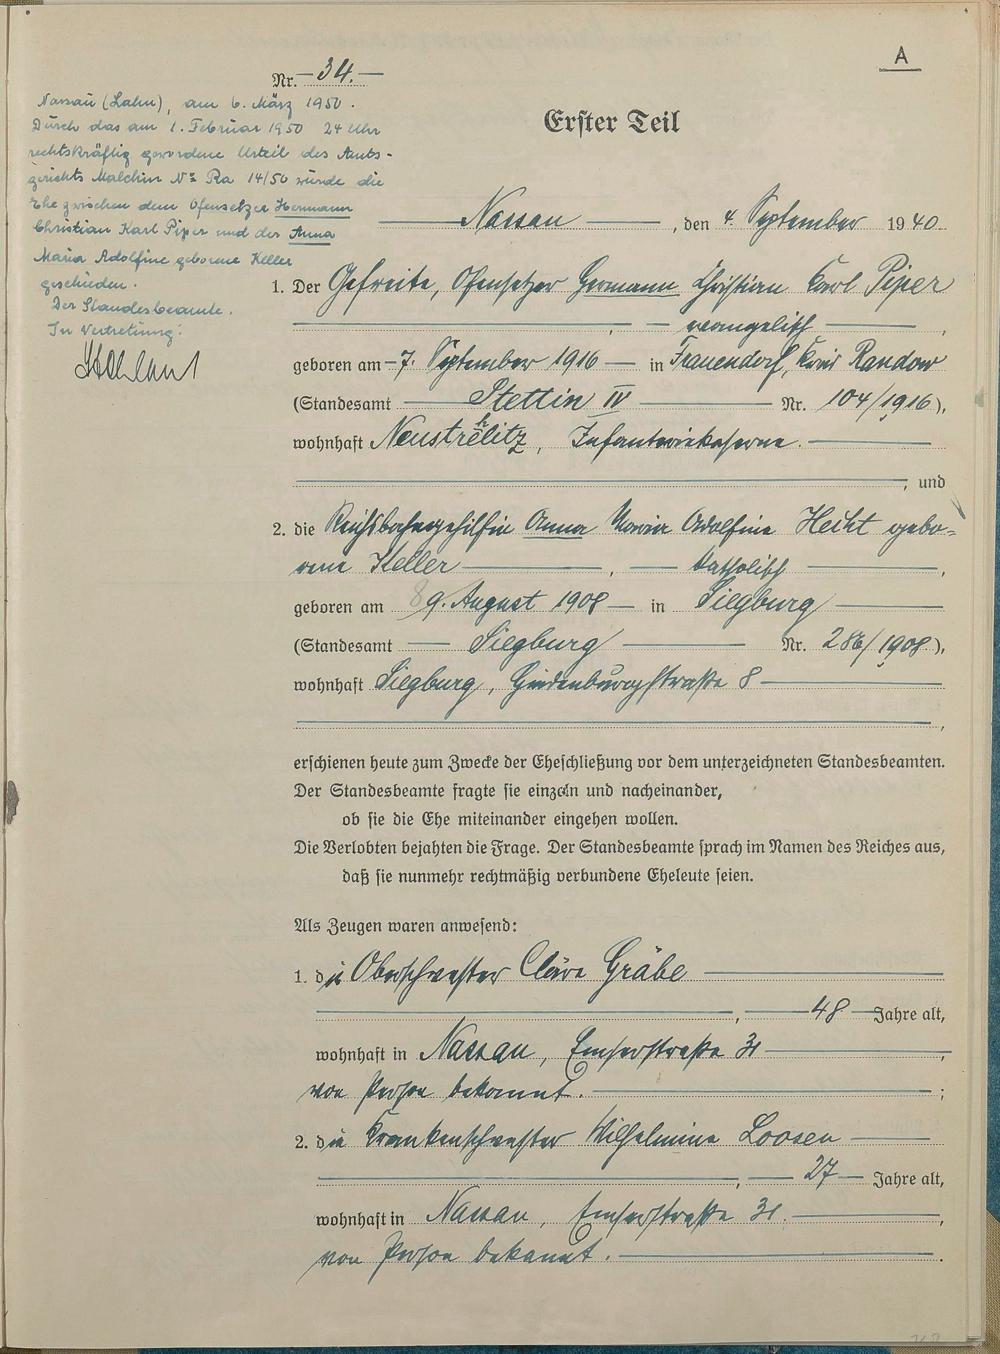 A
Nr. 34.
Nassau (Lahn), am 6. März 1950.
Durch das am 1. Februar 1950 24 Uhr
rechtskräftig gewordene Urteil des Amts-
gerichts Malchin N° Ra 14/50 wurde die
Ehe zwischen dem Ofensetzer Hermann
Christian Karl Piper und der Anna
Maria Adolfine geborene Keller
geschieden.
Der Standesbeamte.
In Vertretung:
Erster Teil
Nassau, den 4. September 1940.
1. Der Gefreite, Ofensetzer Hermann Christian Karl Piper
, evangelisch,
geboren am 7. September 1916 in Frauendorf, Kreis Randow
(Standesamt Stettin IV Nr. 104/1916),
wohnhaft Neustrelitz, Infanteriekaserne.
; und
2. die Reichsbahngehilfin Anna Maria Adolfine Hecht gebo-
rene Keller, katholisch,
geboren am 9. August 1908 in Siegburg
(Standesamt Siegburg Nr. 286/1908),
wohnhaft Siegburg, Hindenburgstraße 8
,
erschienen heute zum Zwecke der Eheschließung vor dem unterzeichneten Standesbeamten.
Der Standesbeamte fragte sie einzeln und nacheinander,
ob sie die Ehe miteinander eingehen wollen.
Die Verlobten bejahten die Frage. Der Standesbeamte sprach im Namen des Reiches aus,
daß sie nunmehr rechtmäßig verbundene Eheleute seien.
Als Zeugen waren anwesend:
1. die Oberschwester Cläre Gräbe
, 48 Jahre alt,
wohnhaft in Nassau, Emserstraße 31,
von Person bekannt.;
2. die Krankenschwester Wilhelmine Loosen
, 27 Jahre alt,
wohnhaft in Nassau, Emserstraße 31.,
von Person bekannt.